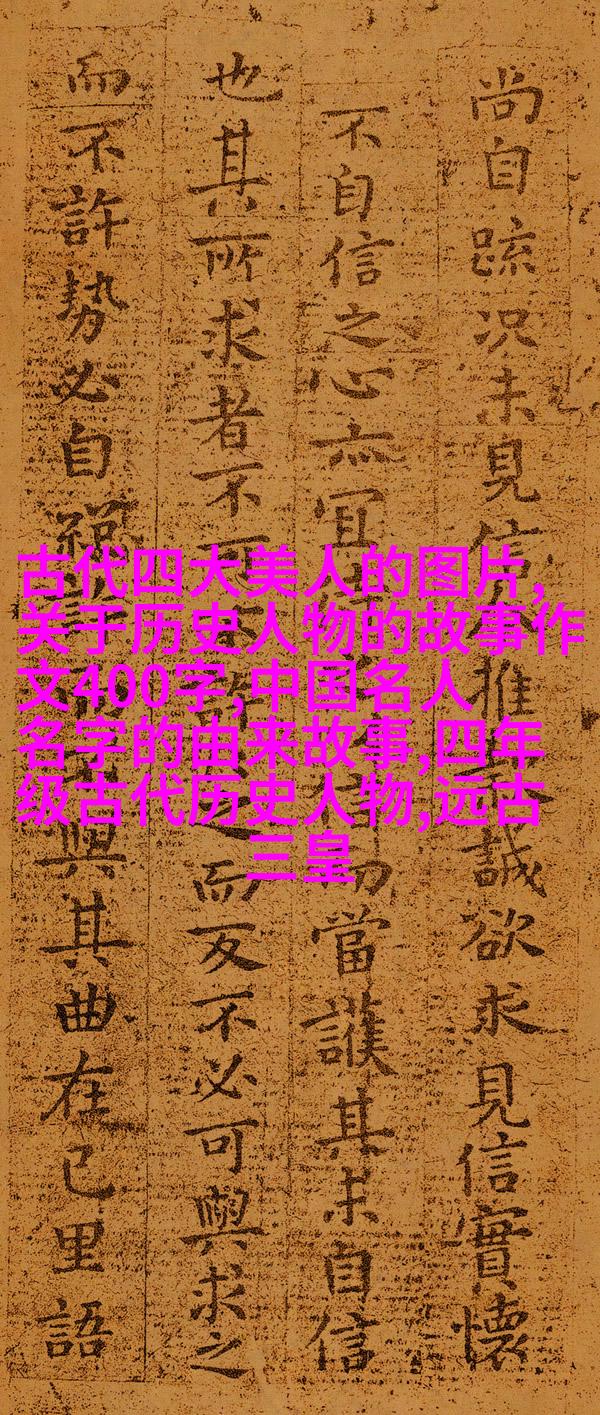 尚自疏況未見信推誠欲求見信實懷
不自信之心亦宜當護其未自信
也其所求者不許而反不必可與求之
而不許勢必自與其曲在己里語
古代四大美人的图片,
关于历史人物的故事作
文400字,中国名人
名字的由来故事,四年
级古代历史人物,远古
三皇